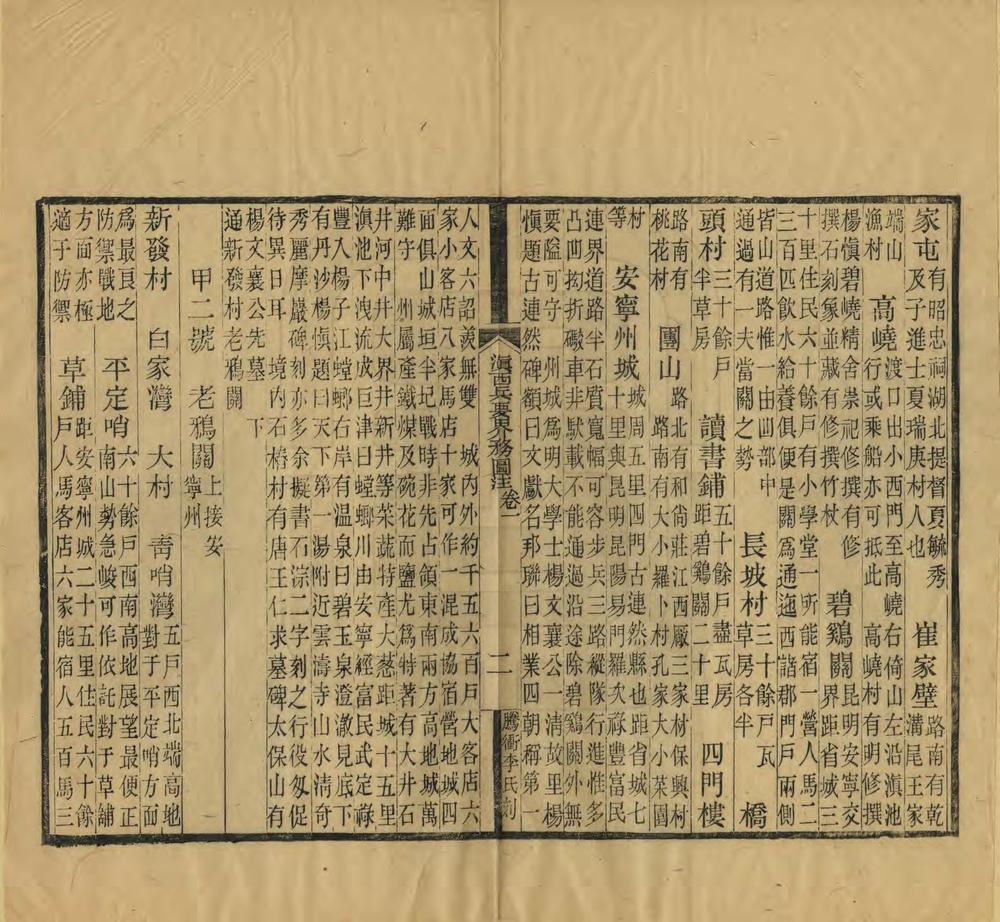 家屯有昭忠祠湖北提督夏毓秀及子進士夏瑞庚村人也 崔家壁路南有乾溝尾王家
端山漁村 高嶢渡口出小西門至高嶢右倚山左沿滇池行或乘船亦可抵此 高嶢村有明修撰
楊愼碧嶢精舍祟祀修撰有修撰石刻象並藏有修撰竹杖 碧鷄關昆明安寧交界距省城三
十里住民六十餘戸有小學堂一所能宿一營人馬二
三百匹飲水給養俱便是關爲通迤西諸郡門戸兩側
皆山道路惟一由凹部中通過有一夫當關之勢 長坡村三十餘戸瓦草房各半 橋
頭村三十餘戸半草房 讀書鋪五十餘戸盡瓦房距碧鷄關二十里 四門樓
路南有桃花村 團山路北有和尚莊江西厰三家村保興村路南有大小羅卜村孔家大小菜園
村等 安寧州城城周五里四門古連然縣也距省城七十里與昆明昆陽易門羅次祿豐富民
連界道路半石質寬幅可容步兵三路縱隊行進惟多
凸凹拗折礙車非馱載不能通過沿途除碧鷄關外無
要隘可守 州城爲明大學士楊文襄公一清故里楊
愼題古連然碑額曰文獻名邦聯曰相業四朝稱第一
滇西兵要界務圖注 卷一 二 騰衝李氏刻
人文六詔羨無雙 城内外約千五六百戸大客店六
家小客店八家馬店十家可作一混成協宿營地城四
面俱山城垣半圮戰時非先占領東南兩方高地城萬
難守 州屬產鐵煤及碗花而鹽尤爲特著有大井石
井河中井大界井新井等菜蔬特產大葱距城十五里
滇池下洩流成巨津曰螳螂川由安寧經富民武定祿
豐入楊子江螳螂右岸有温泉曰碧玉泉澄澈見底下
有丹沙楊愼題曰天下第一湯附近雲濤寺山水清奇
秀麗摩巖碑刻亦多余擬書石淙二字刻之行役匆促
待異日耳 境内石樁村有唐王仁求墓碑太保山有
楊文襄公先墓 下
通新發村老鴉關
甲二號 老鴉關上接安寧州
新發村 白家灣 大村 靑哨灣五戸西北端高地對于平定哨方面
爲最良之防禦戰地 平定哨六十餘戸西南高地展望最便正南山勢急峻可作依託對于草舖
方面亦極適于防禦 草鋪距安寧州城二十五里住民六十餘戸人馬客店六家能宿人五百馬三